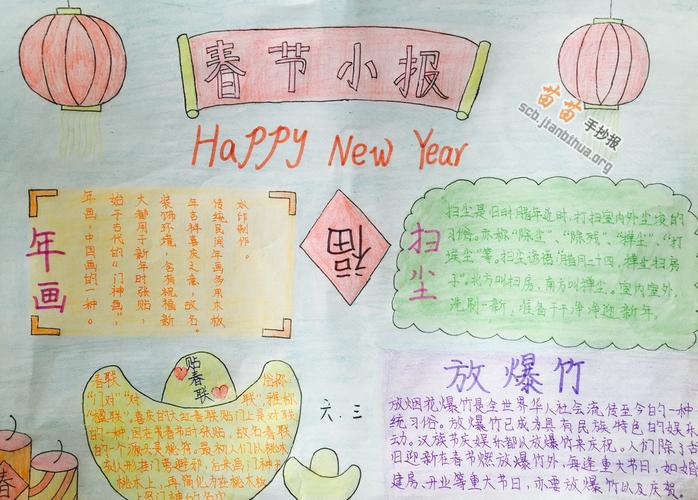 春节小报
苗苗
手抄报
scb.jianbihua.org
HAPPY New Year
年画
年画，中国画的一种。
始于古代的“门神画”，
大都用于新年时张贴，
装饰环境，含有祝福新
年吉祥喜庆之意，故名。
传统民间年画多用木板
水印制作。
福
扫尘
扫尘是旧时腊年近时，打扫室内外尘垢的
习俗。亦称“除尘”、“除残”、“掸尘”、“打
埃尘”等。扫尘透语“腊月二十四，掸尘扫房
子”，北方叫扫房，南方叫掸尘。室内室外，
洗刷一新，准备干干净净迎新年。
贴春联
春联 俗称
“门对”“对 联”，雅称
“楹联”，喜庆的
的一种，因在
的一个源头是桃符。最初人们以桃木
六.三
放爆竹
放烟花爆竹是全世界华人社会流传至今日的一种
统习俗。放爆竹已成为具有民族特色的娱乐
动。汉族节庆娱乐都以放爆竹来庆祝。人们除了
旧迎新在春节燃放爆竹外，每逢重大节日，如婚
建房、开业等重大节日，亦要放爆竹以及庆贺
春